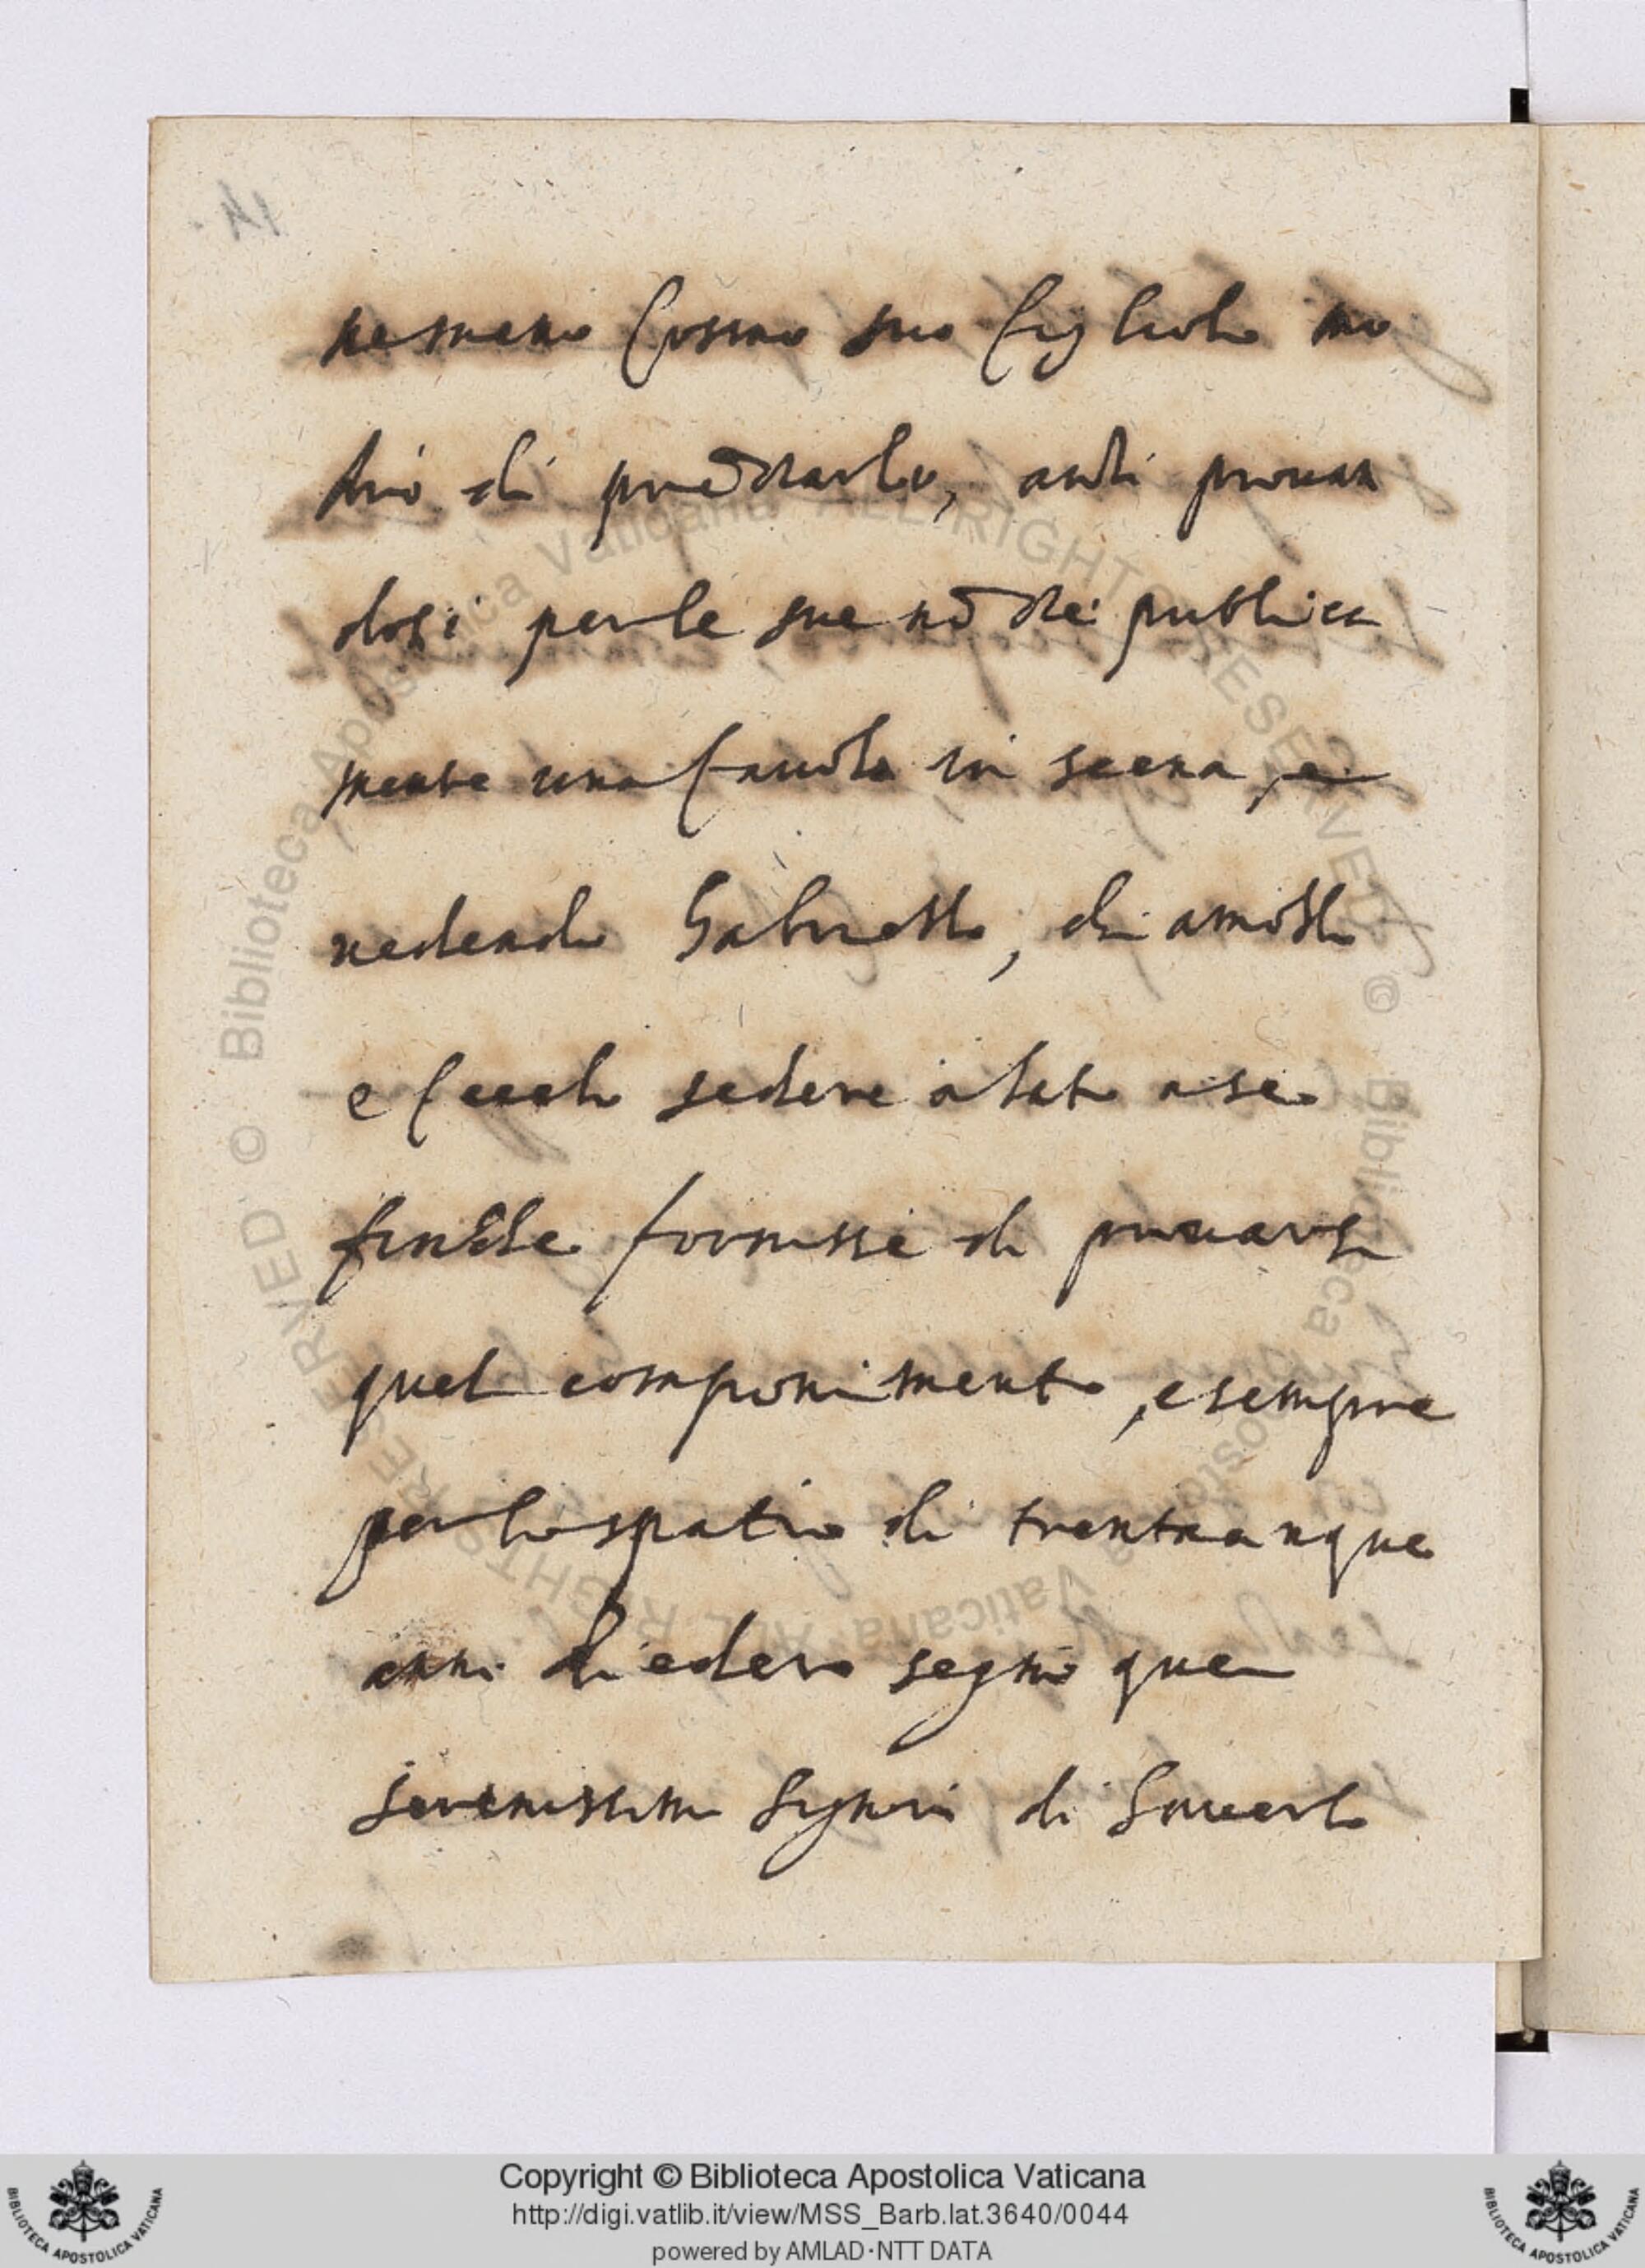 ne meno Cosmo suo figliolo ma
dio di
dosi per le sue nozze publica
mente una favola in scena, e
vedendo Gabriello, chiamollo
e fecelo sedere a lato a se
finche fornisse di provarsi
quel componimento, e sempre
per lo spatio di trentacinque
anni diedero segno quei
Serenissimi Signori di haverlo
Copyright © Biblioteca Apostolica Vaticana
http://digi.vatlib.it/view/MSS_Barb.lat.3640/0044
powered by AMLAD·NTT DATA
Biblioteca Apostolica Vaticana ALL RIGHTS RESERVED ©
Biblioteca Apostolica Vaticana ALL RIGHTS RESERVED ©
BIBLIOTECA APOSTOLICA VATICANA
BIBLIOTECA APOSTOLICA VATICANA